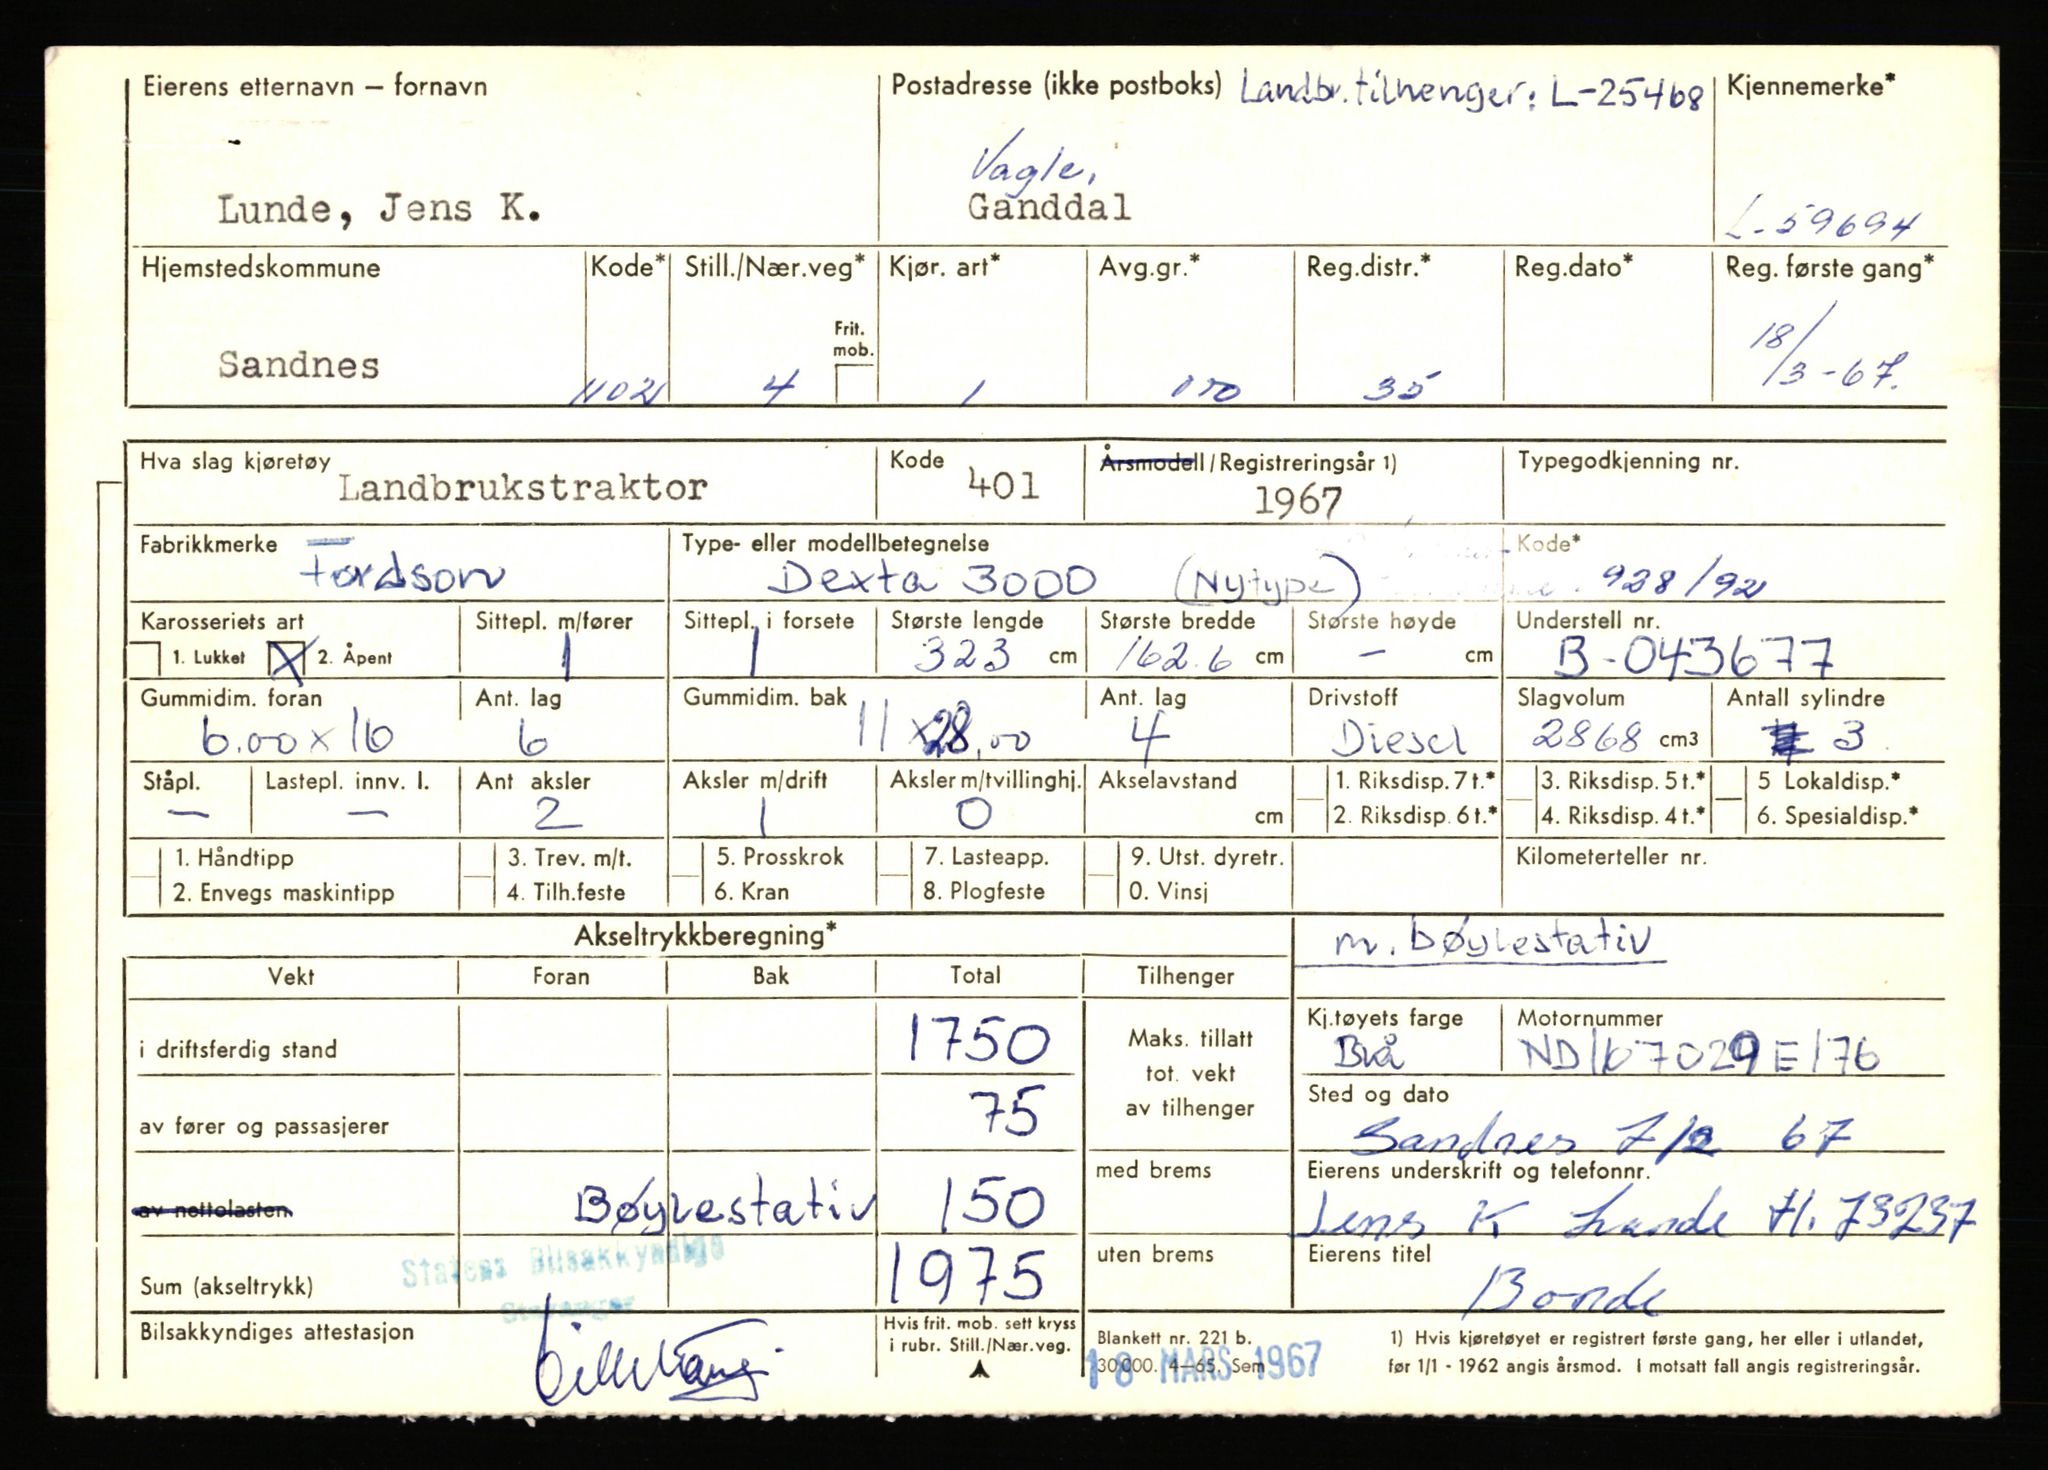 Eierens etternavn — fornavn
Postadresse (ikke postboks) Landbr.tilhenger: L-25468
Kjennemerke*
Vagle,
Lunde, Jens K.
Ganddal
L-59694
Hjemstedskommune
Kode*
Still./Nær.veg*
Kjør. art*
Avg.gr.*
Reg.distr.*
Reg.dato*
Reg. første gang*
Frit.
mob.
18/3-67.
Sandnes
1102
4
1
35
Hva slag kjøretøy
Landbrukstraktor
Kode
401
Årsmodell/Registreringsår 1)
1967
Typegodkjenning nr.
Fabrikkmerke
Fordson
Type- eller modellbetegnelse
Dexta 3000 (Nytype)
Kode*
928/92
Karosseriets art
Sittepl. m/fører
Sittepl. i forsete
Største lengde
Største bredde
Største høyde
Understell nr.
1. Lukket X 2. Åpent
1
1
323 cm
162.6 cm
– cm
B-043677
Gummidim. foran
Ant. lag
Gummidim. bak
Ant. lag
Drivstoff
Slagvolum
Antall sylindre
6.00 x 16
6
11 x 28,00
4
Diesel
2868 cm3
3
Ståpl.
Lastepl. innv. l.
Ant aksler
Aksler m/drift
Aksler m/tvillinghj.
Akselavstand
1. Riksdisp. 7 t.*
3. Riksdisp. 5 t.*
5 Lokaldisp.*
–
–
2
1
0
cm
2. Riksdisp. 6 t.*
4. Riksdisp. 4 t.*
6. Spesialdisp.*
1. Håndtipp
3. Trev. m/t.
5. Prosskrok
7. Lasteapp.
9. Utst. dyretr.
Kilometerteller nr.
2. Envegs maskintipp
4. Tilh.feste
6. Kran
8. Plogfeste
0. Vinsj
Akseltrykkberegning*
m. bøylestativ
Vekt
Foran
Bak
Total
Tilhenger
i driftsferdig stand
1750
Maks. tillatt
tot. vekt
av tilhenger
Kj.tøyets farge
Blå
Motornummer
ND167029E176
av fører og passasjerer
75
Sted og dato
Sandnes 7/2 67
av nettolasten
Bøylestativ
150
med brems
Eierens underskrift og telefonnr.
Jens K Lunde tl. 73237
Sum (akseltrykk)
Statens Bilsakkyndige
Stavanger
1975
uten brems
Eierens titel
Bonde
Bilsakkyndiges attestasjon
Hvis frit. mob. sett kryss
i rubr. Still./Nær.veg.
Blankett nr. 221 b.
30 000. 4—65. Sem
18 MARS 1967
1) Hvis kjøretøyet er registrert første gang, her eller i utlandet,
før 1/1 - 1962 angis årsmod. I motsatt fall angis registreringsår.